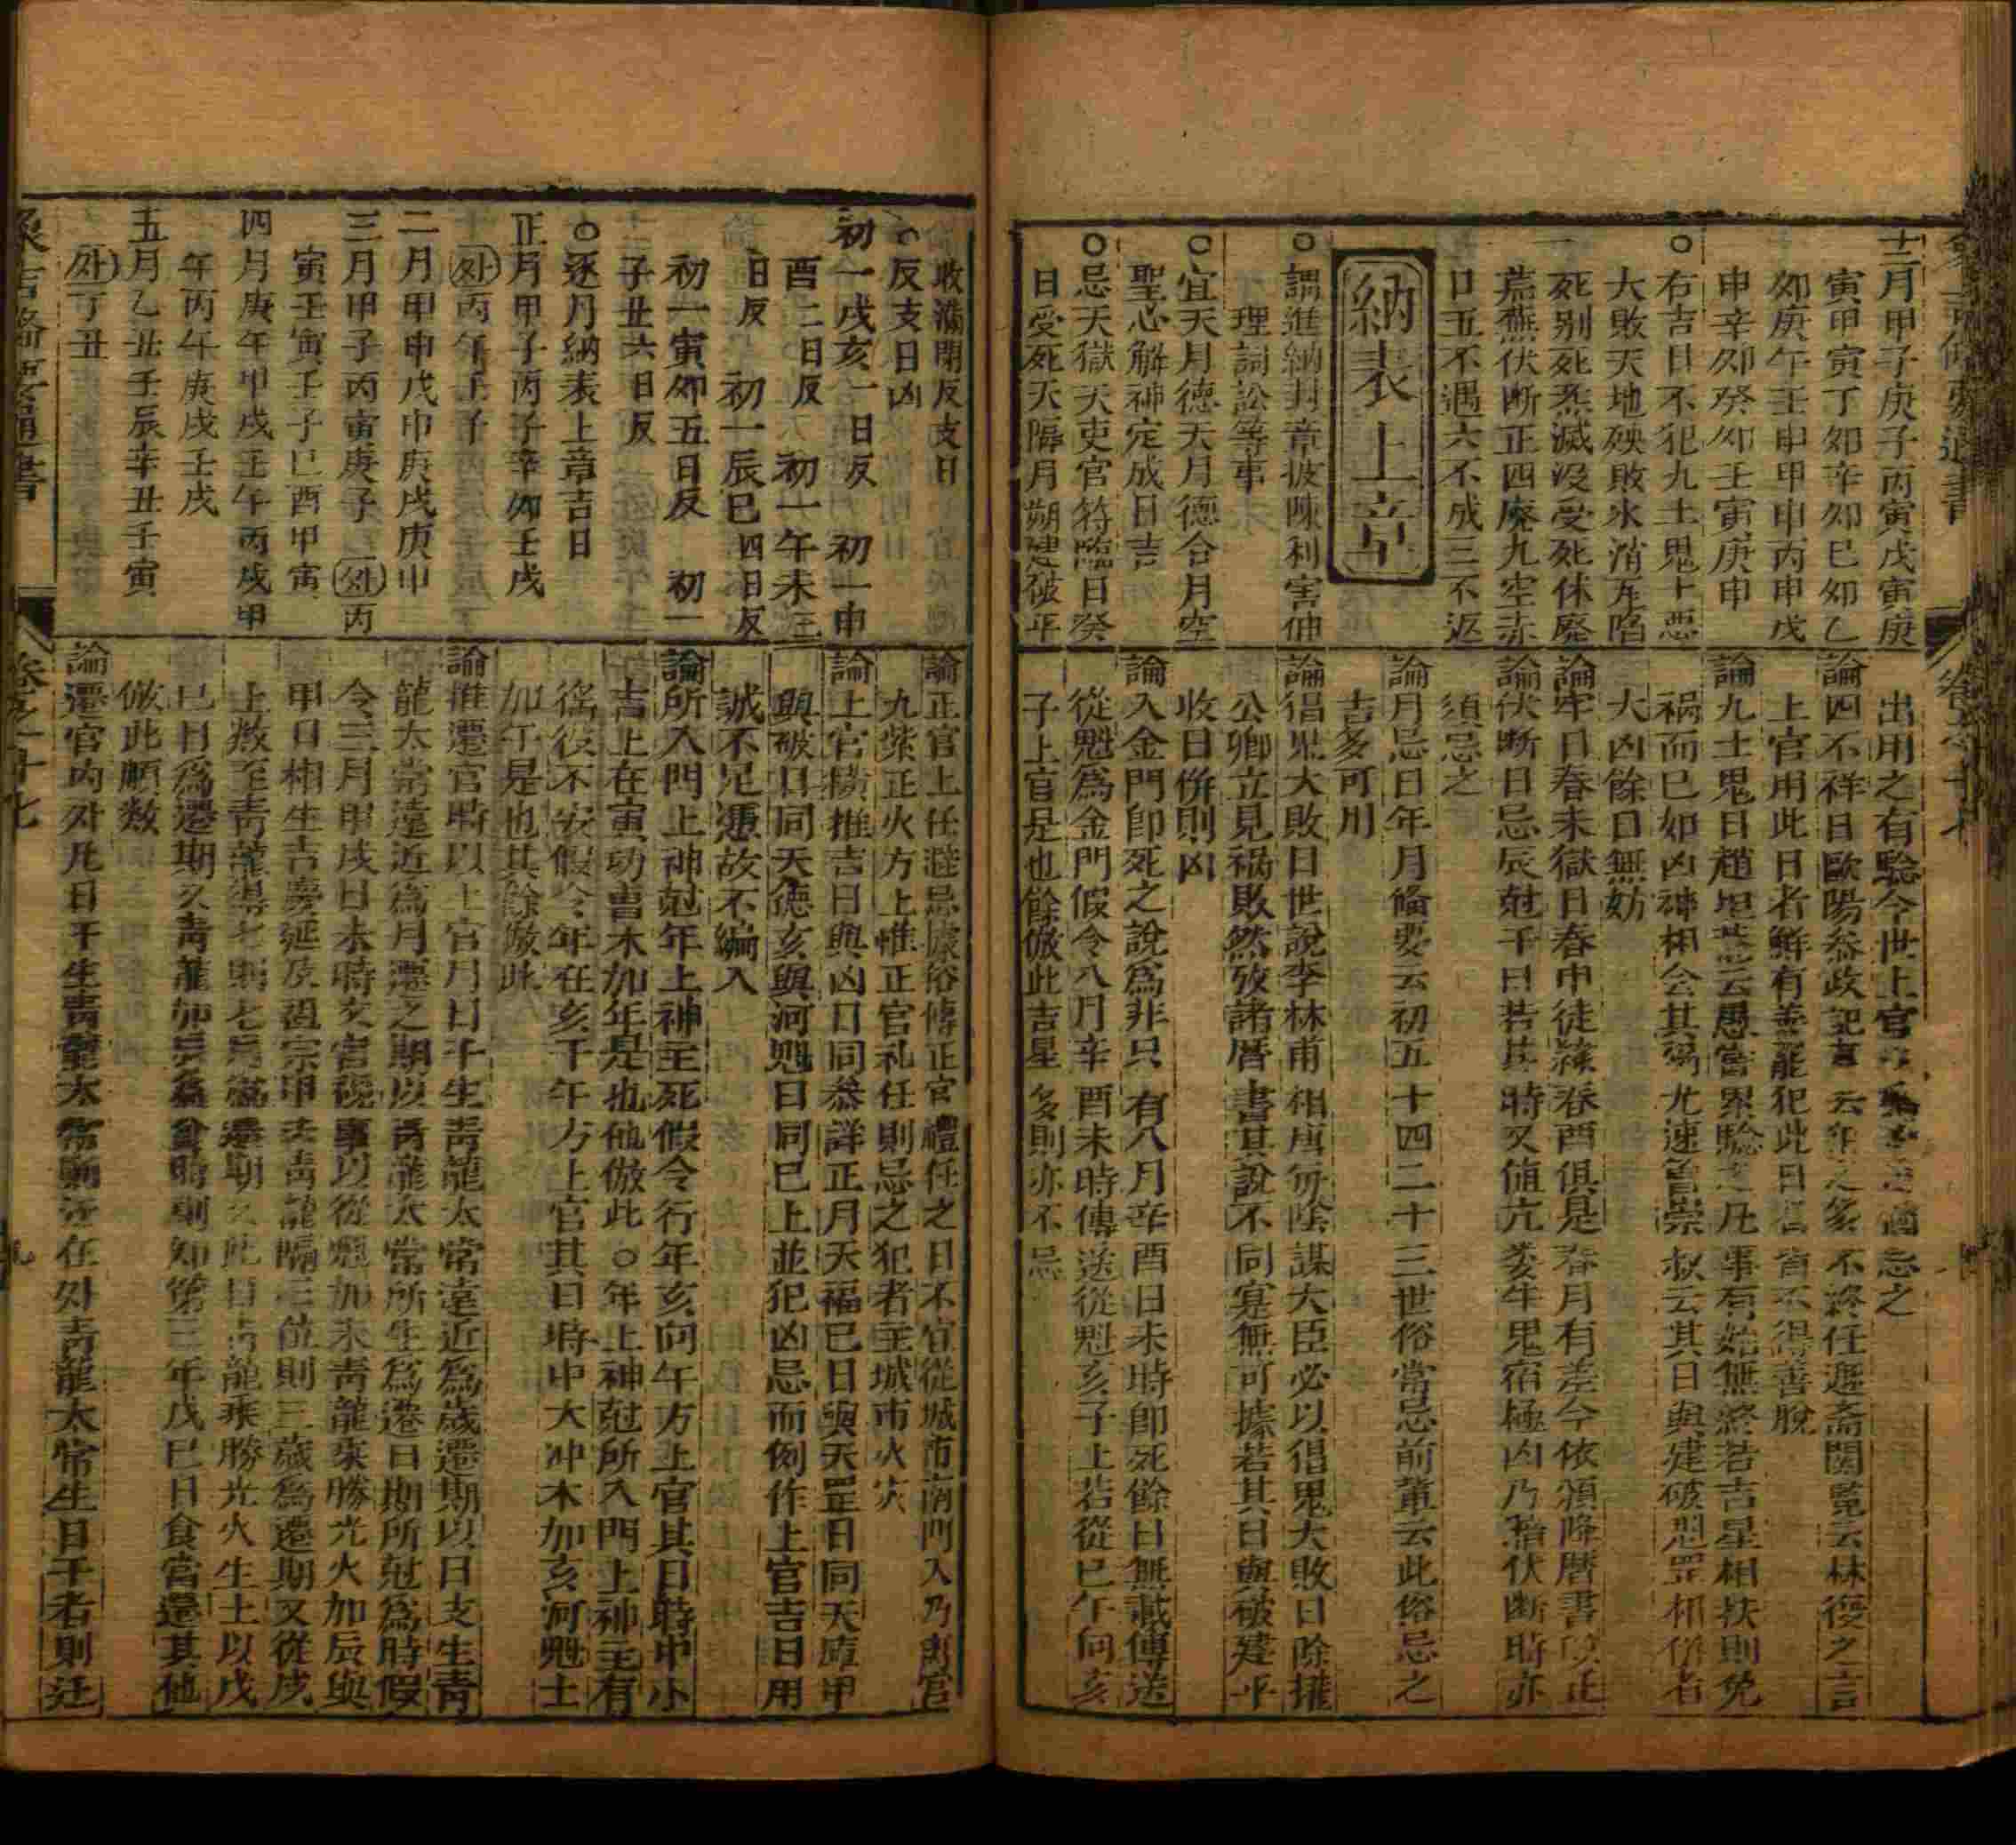 十二月甲子庚子丙寅戊寅庚
寅甲寅丁卯辛卯巳卯乙
卯庚午壬申甲申丙申戊
申辛卯癸卯壬寅庚申
○右吉日不犯九土鬼十惡
大敗天地殃敗氷消瓦陷
死别死炁滅没受死休廢
荒蕪伏断正四廢九空赤
口五不遇六不成三不返
納表上章
○謂進納封章披陳利害伸
理詞訟等事
○宜天月德天月德合月空
聖心解神定成日吉
○忌天獄天吏官符臨日癸
日受死天隔月朔建破平
出用之有驗今世上官
忌之
論四不祥日歐陽叅政記
不終任遯斋閑覧云林復之言
上官用此日者鮮有善罷犯此日者皆不得善脫
論九土鬼日趙
云愚嘗累驗之凡事有始無終若吉星相扶則免
禍而巳如凶神相会其禍尤速曾崇叔云其日與建破魁罡相併者
大凶餘日無妨
論牢日春未獄日春申徒隸春酉俱是春月有差今依頒降曆書以正
論伏断日忌辰尅干日若其時又值亢娄牛鬼宿極凶乃暗伏断時亦
須忌之
論月忌日年月備要云初五十四二十三世俗常忌前軰云此俗忌之
吉多可用
論猖鬼大敗日世說李林甫相唐每陰謀大臣必以猖鬼大敗日除擢
公卿立見禍敗然攷諸曆書其說不同寔無可據若其日與破建平
收日併則凶
論入金門卽死之說爲非只有八月辛酉日未時卽死餘日無諴傳送
從魁爲金門假令八月辛酉未時傳送從魁亥子上若從巳午向亥
子上官是也餘倣此吉星多則亦不忌
收滿閉反支日
○反支日凶
初一戌亥一日反 初一申
酉二日反 初一午未三
日反 初一辰巳四日反
初一寅卯五日反 初一
子丑六日反
○逐月納表上章吉日
正月甲子丙子辛卯壬戌
外丙午壬子
二月甲申戊申庚戌庚申
三月甲子丙寅庚子 外丙
寅壬寅壬子巳酉甲寅
四月庚午甲戌壬午丙戌甲
午丙午庚戌壬戌
五月乙丑壬辰辛丑壬寅
外丁丑
論正官上任避忌據俗傳正官禮任之日不宜從城市南門入乃离宫
九紫正火方上惟正官礼任則忌之犯者主城市火灾
論上官横推吉日與凶日同叅詳正月天福巳日與天罡日同天庫甲
與破日同天德亥與河魁日同巳上並犯凶忌而例作上官吉日用
誠不足憑故不編入
論所入門上神尅年上神主死假令行年亥向午方上官其日時申小
吉上在寅功曹木加年是也他倣此○年上神尅所入門上神主有
徭役不安假令年在亥千午方上官其日時申大冲木加亥河魁土
加午是也其餘倣此
論推遷官時以上官月日干生青龍太常遠近爲歲遷期以日支生青
龍太常遠近爲月遷之期以青龍太常所生爲遷日期所尅爲時假
令三月甲戌日未時亥官視事以從魁加未青龍乘勝光火加辰與
甲日相生吉慶延及祖宗甲去青龍隔三位則三歲爲遷期又從戌
上数至青龍得七則七月爲遷期又此日青龍乘勝光火生土以戊
巳日爲遷期久青龍加
時則知第三年戊巳日食當還其他
倣此順数
論遷官内外凡日干生青龍太常則迁在外青龍太常生日干者則迁